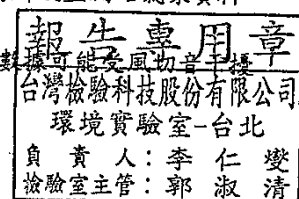 報告專用章
數據可能受風切音干擾
台灣檢驗科技股份有限公司
環境實驗室-台北
負責人:李仁燮
檢驗室主管:郭淑清